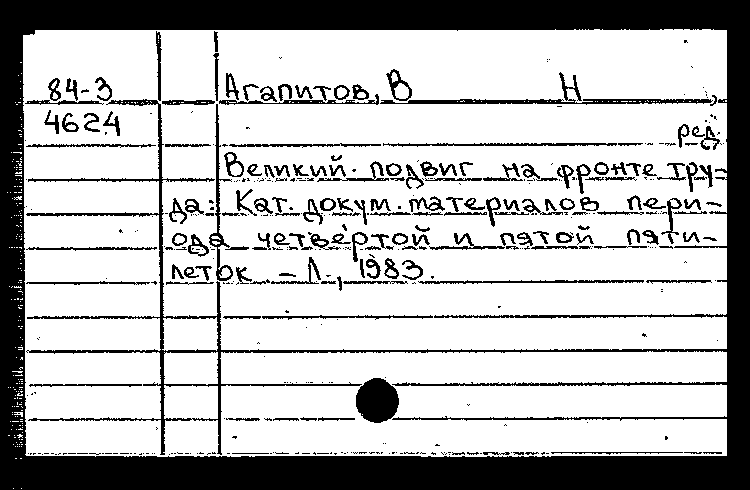 84-3 Агапитов, В Н ,
4624 ред.
Великий подвиг на фронте тру-
да: Кат. докум. материалов пери-
ода четвёртой и пятой пяти-
леток. - Л., 1983.